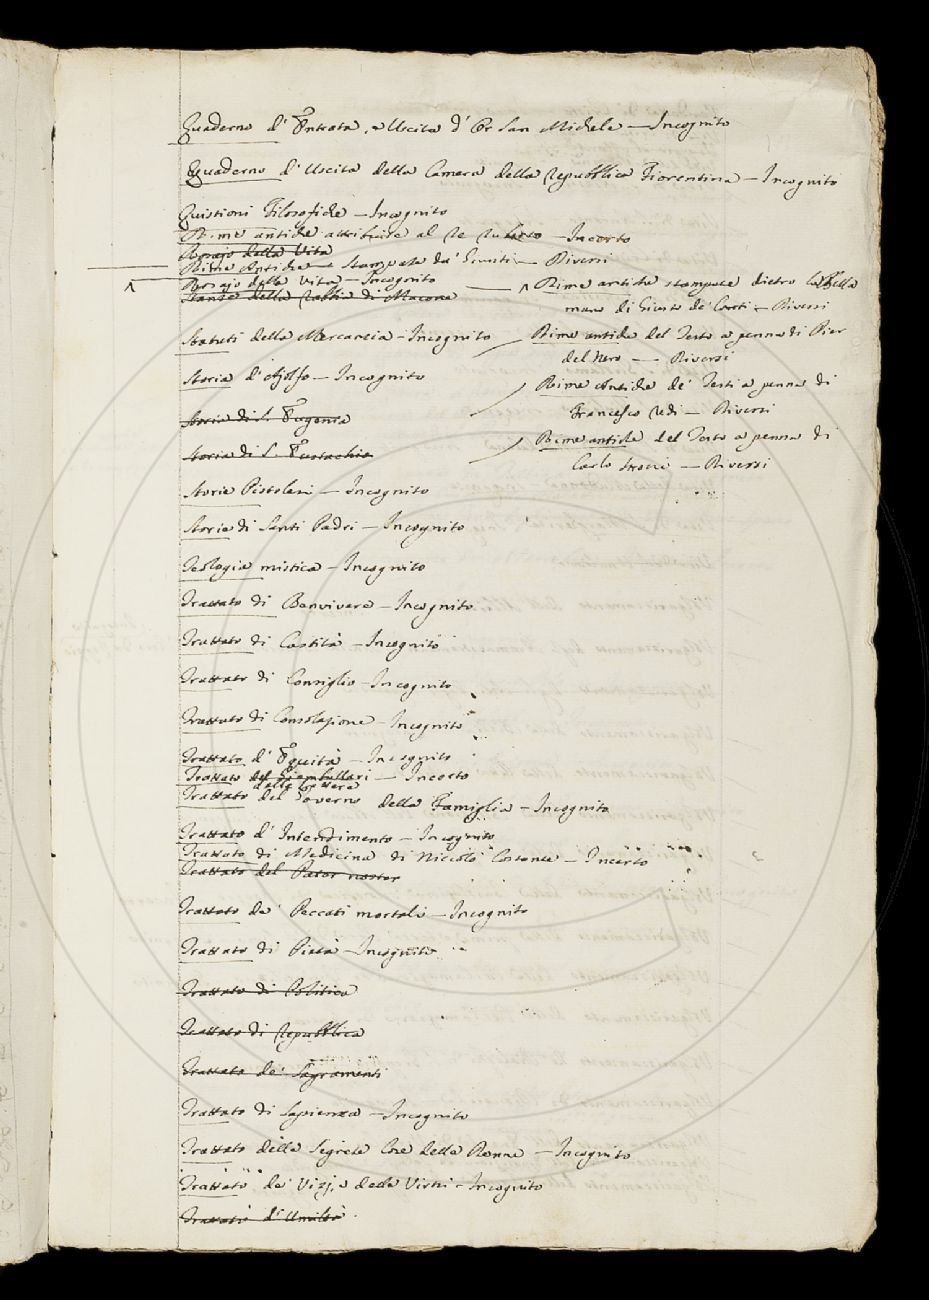 Quaderno d' Entrata, e Uscita d' Or San Michele — Incognito
Quaderno d' Uscita della Camera della Repubblica Fiorentina — Incognito
Quistioni Filosofiche — Incognito
Rime antiche attribuite al Re — Incerto
Rosajo della Vita
Rime Antiche — Stampate da' Giunti — Diversi
Rosajo della Vita — Incognito
Stanze della Rabbia di Macone
Statuti della Mercanzia — Incognito
Storia d' Ajolfo — Incognito
Storia di S. Eugenia
Storia di S. Eustachio
Storie Pistolesi — Incognito
Storie di Santi Padri — Incognito
Teologia mistica — Incognito
Trattato di Benvivere — Incognito
Trattato di Castità — Incognito
Trattato di Consiglio — Incognito
Trattato di Consolazione — Incognito
Trattato d' Equità — Incognito
Trattato del Giambullari — Incerto
delle Lettere
Trattato del Governo della Famiglia — Incognito
Trattato d' Intendimento — Incognito
Trattato di Medicina di Niccolò — Incerto
Trattato del Pater noster
Trattato de' Peccati mortali — Incognito
Trattato di Pietà — Incognito
Trattato di Politica
Trattato di Repubblica
Trattato de' Sagramenti
Trattato di Sapienza — Incognito
Trattato delle Segrete Cose delle Donne — Incognito
Trattato de' Vizj, e delle Virtù — Incognito
Trattato d' Umiltà
Rime antiche stampate dietro la Bella
mano di Giusto de' Conti — Diversi
Rime antiche del Testo a penna di Pier
del Nero — Diversi
Rime Antiche de' Testi a penna di
Francesco Redi — Diversi
Rime antiche del Testo a penna di
Carlo Strozzi — Diversi